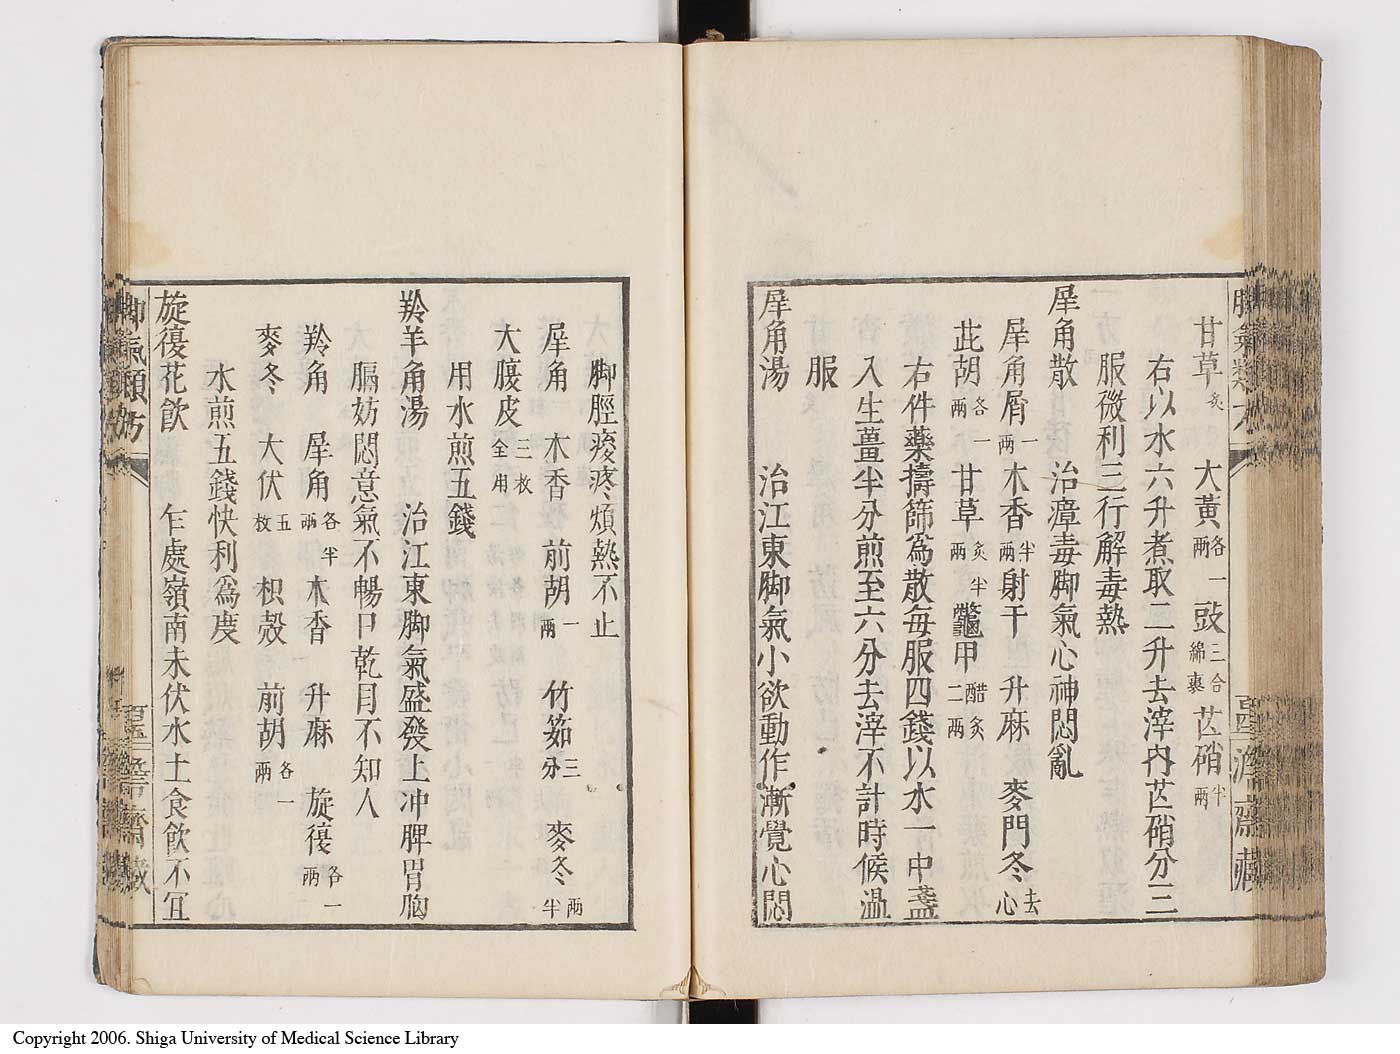 甘草炙 大黃各一兩 豉三合綿裹 芒硝半兩
右以水六升煮取二升去滓內芒硝分三
服微利三行解毒熱
犀角散 治瘴毒脚氣心神悶亂
犀角屑一兩 木香半兩 射干 升麻 麥門冬去心
茈胡各一兩 甘草炙半兩 鼈甲醋炙二兩
右件藥擣篩為散每服四錢以水一中盞
入生薑半分煎至六分去滓不計時候溫
服
犀角湯 治江東脚氣小欲動作漸覺心悶
脚脛痠疼煩熱不止
犀角 木香 前胡一兩 竹筎三分 麥冬兩半
大腹皮三枚全用
用水煎五錢
羚羊角湯 治江東脚氣盛發上冲脾胃胸
膈妨悶意氣不暢口乾目不知人
羚角 犀角各半兩 木香 升麻 旋復各一兩
麥冬 大伏五枚 枳殼 前胡各一兩
水煎五錢快利為度
旋復花飲 乍處嶺南未伏水土食飲不宜
脚氣類方
Copyright 2006. Shiga University of Medical Science Library